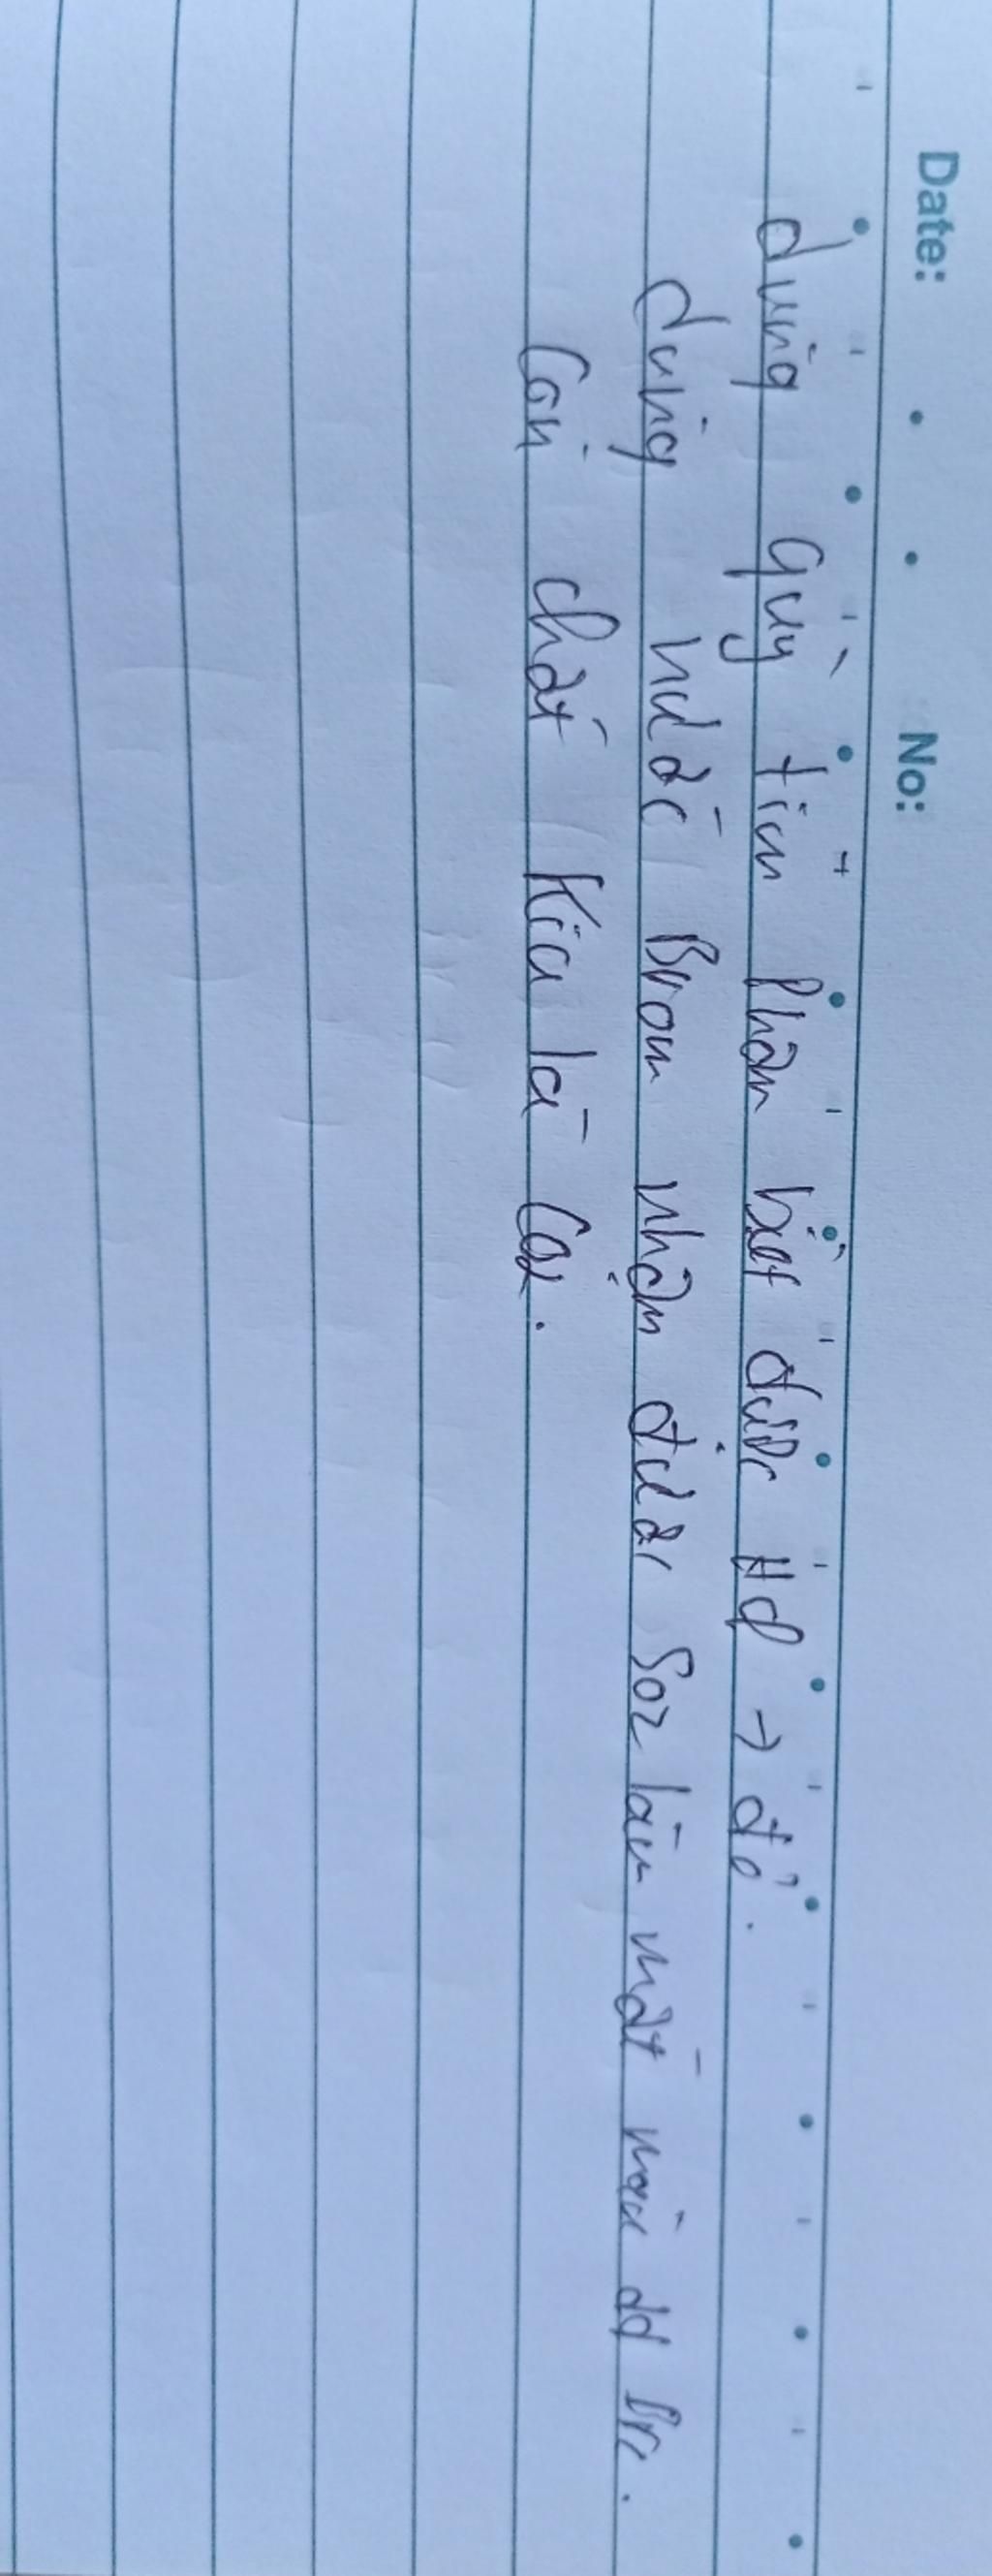 Date: No:
dùng quỳ tím phân biệt được HCl → đỏ.
dùng nước Brom nhận được SO2 làm mất màu dd Br2.
Còn chất kia là CO2.